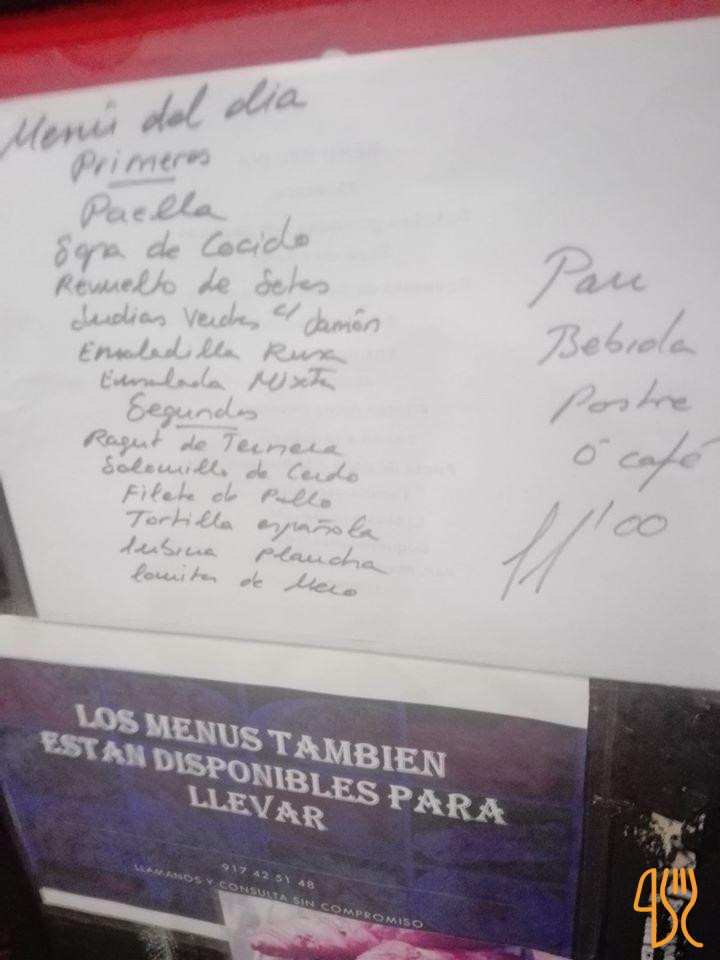 Menú del dia
Primeros
Paella
Sopa de Cocido
Revuelto de Setas
Judias Verdes c/ Jamón
Ensaladilla Rusa
Ensalada Mixta
Segundos
Ragut de Ternera
Solomillo de Cerdo
Filete de Pollo
Tortilla española
lubina plancha
lomitos de Mero
Pan
Bebida
Postre
ó café
11'00
LOS MENUS TAMBIEN
ESTAN DISPONIBLES PARA
LLEVAR
917 42 51 48
LLAMANOS Y CONSULTA SIN COMPROMISO